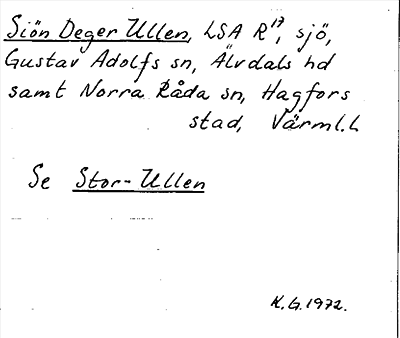 Siön Deger Ullen, LSA R¹⁷, sjö,
Gustav Adolfs sn, Älvdals hd
samt Norra Råda sn, Hagfors
stad, Värml.l.
Se Stor-Ullen
K.G.1972.